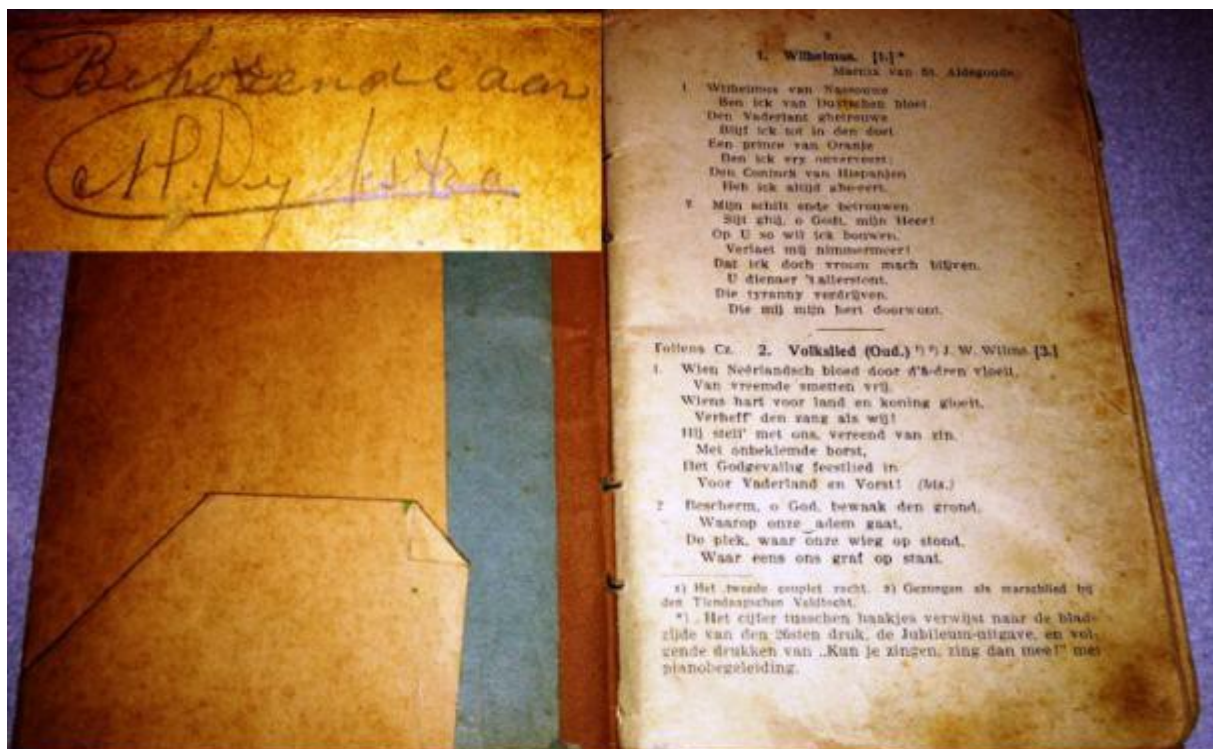 Behorende aan
1. Wilhelmus. [1.]*
Marnix van St. Aldegonde.
1 Wilhelmus van Nassouwe
Ben ick van Duytschen bloet
Den Vaderlant ghetrouwe
Blijf ick tot in den doet.
Een prince van Oranje
Ben ick vry onverveert;
Den Coninck van Hispanjen
Heb ick altijd ghe-eert.
7. Mijn schilt ende betrouwen
Sijt ghij, o Godt, mijn Heer!
Op U so wil ick bouwen.
Verlaet mij nimmermeer!
Dat ick doch vroom mach blijven.
U dienner 't allerstont.
Die tyranny verdrijven.
Die mij mijn hert doorwont.
Tollens Cz. 2. Volkslied (Oud.) ¹) ²) J. W. Wilms. [3.]
1. Wien Neêrlandsch bloed door d'â-dren vloeit,
Van vreemde smetten vrij,
Wiens hart voor land en koning gloeit,
Verheff' den zang als wij!
Hij stell' met ons, vereend van zin,
Met onbeklemde borst,
Het Godgevallig feestlied in
Voor Vaderland en Vorst! (bis.)
2 Bescherm, o God, bewaak den grond,
Waarop onze adem gaat,
De plek, waar onze wieg op stond,
Waar eens ons graf op staat.
1) Het tweede couplet zacht. 2) Gezongen als marschlied bij
den Tiendaagschen Veldtocht.
*) . Het cijfer tusschen haakjes verwijst naar de blad-
zijde van den 26sten druk, de Jubileum-uitgave, en vol-
gende drukken van „Kun je zingen, zing dan mee!" met
pianobegeleiding.